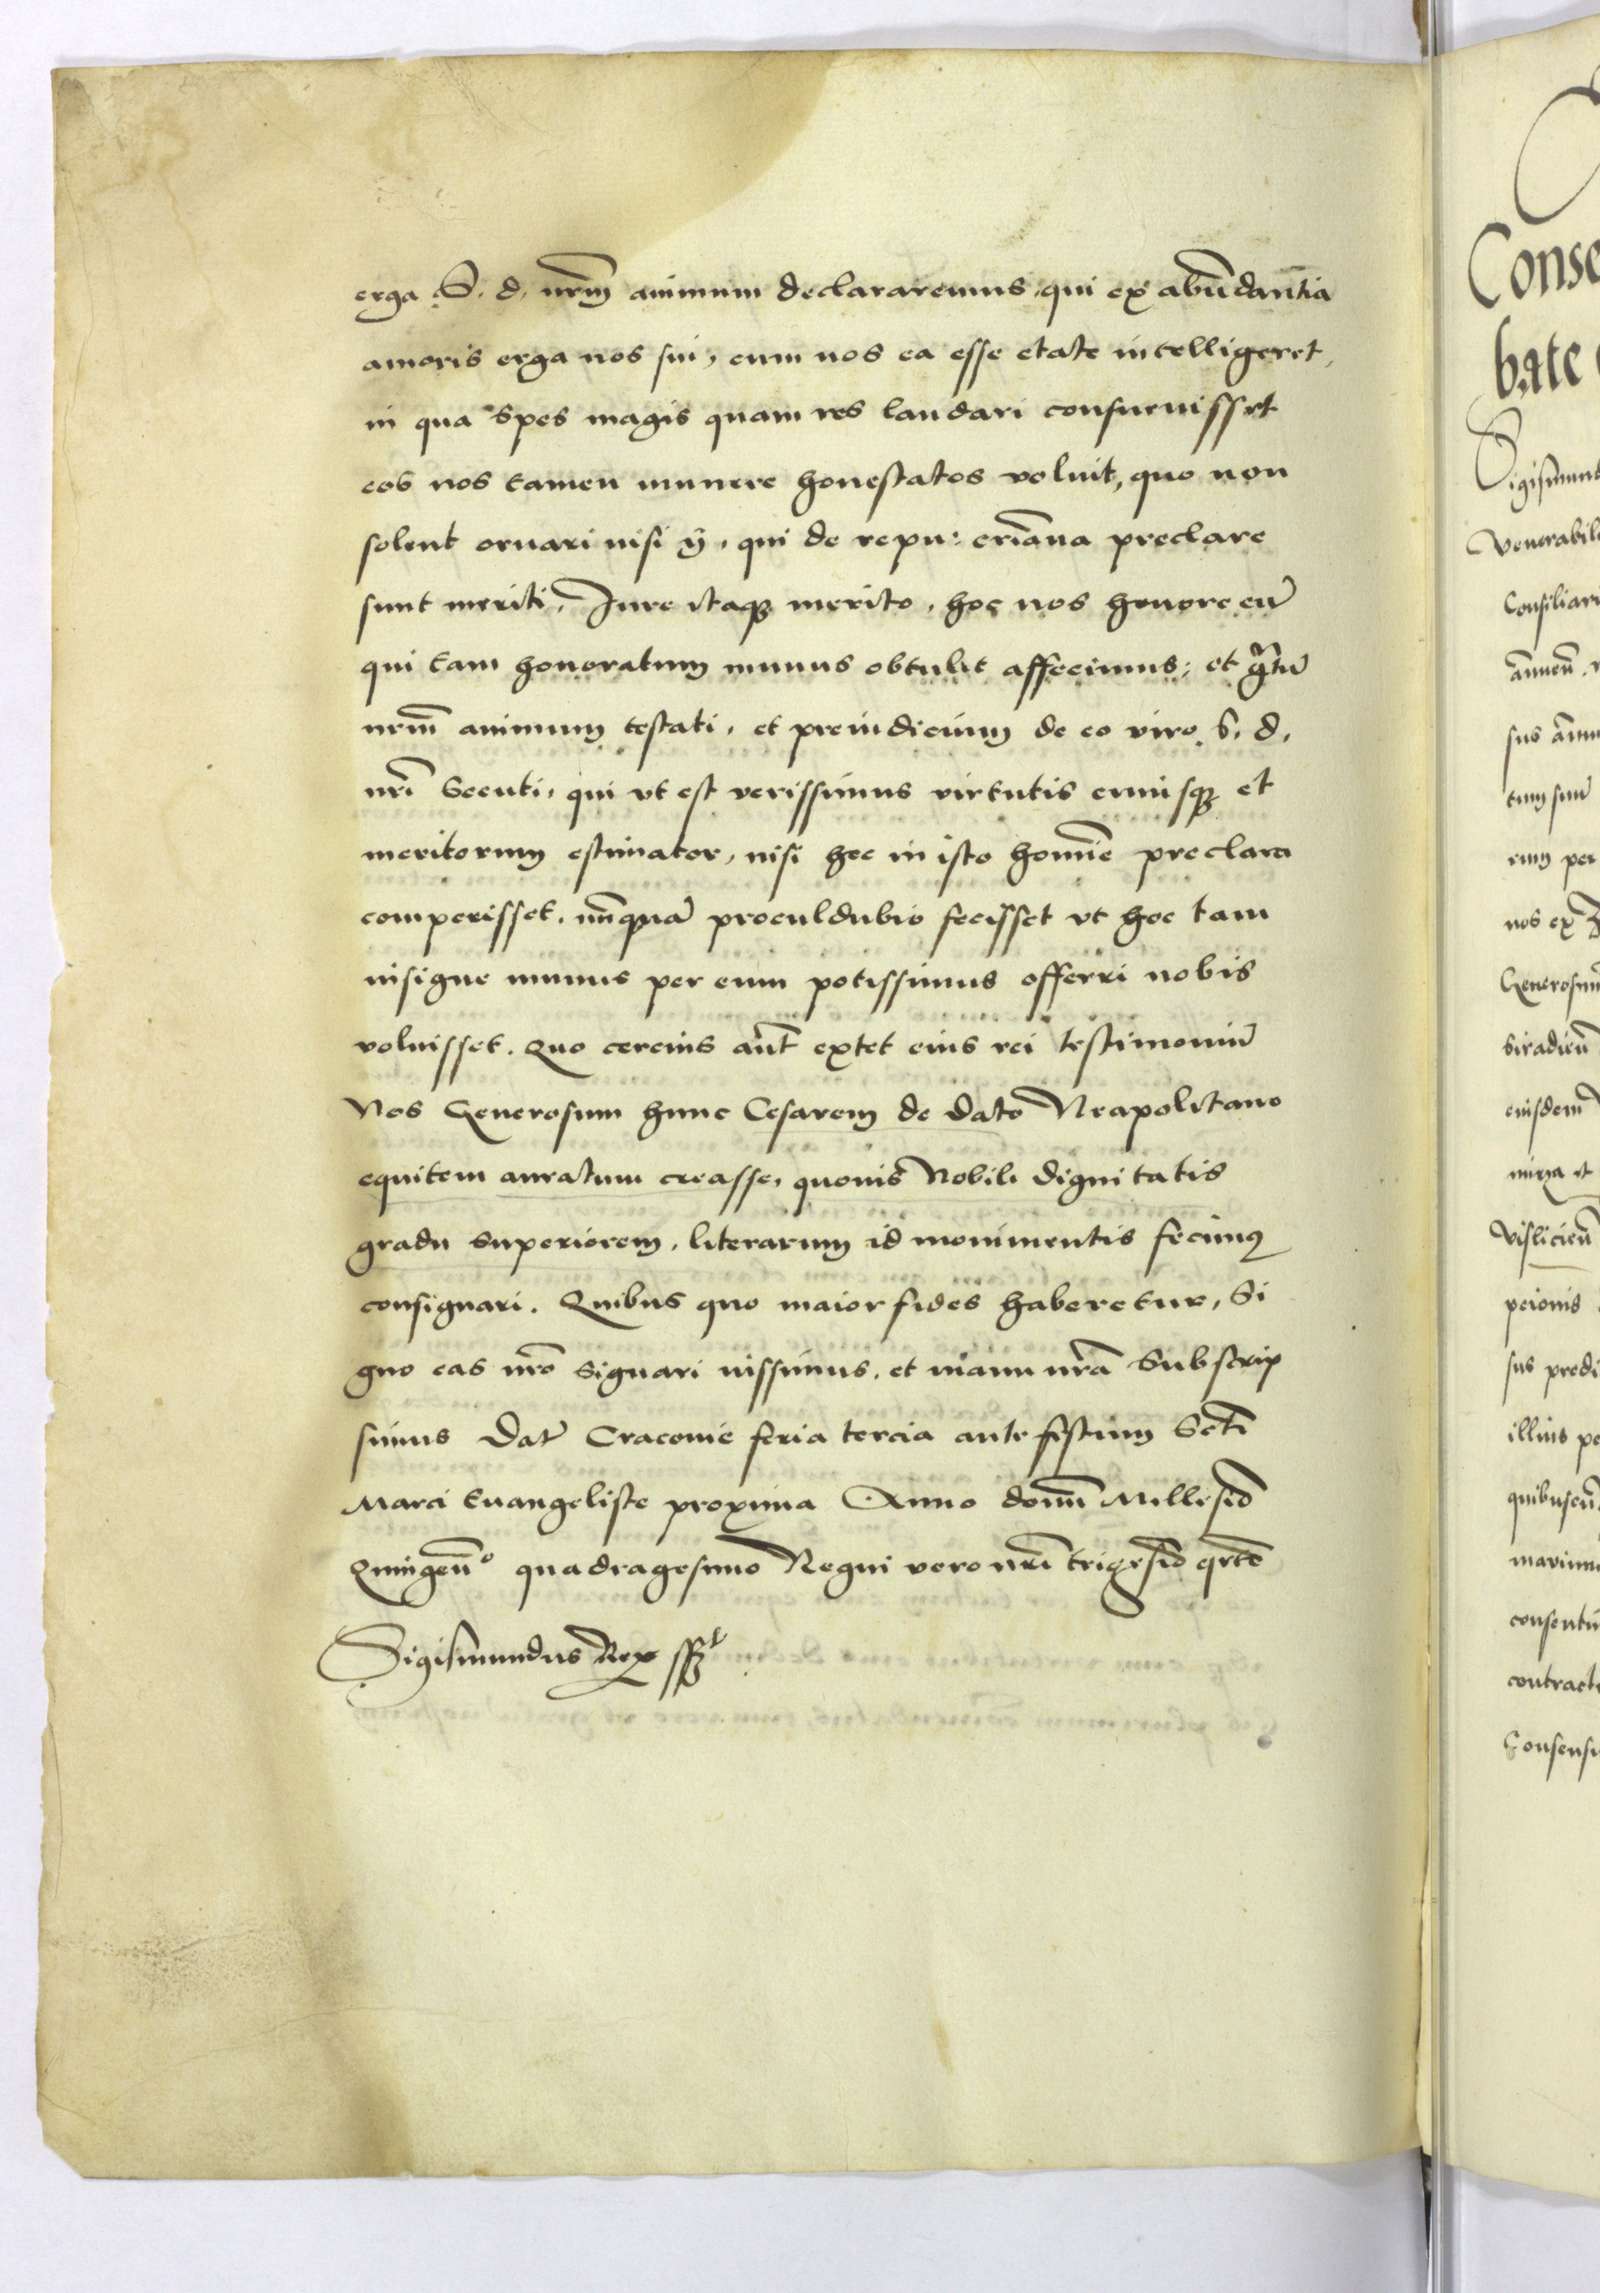 erga S. d. nr̄m animum declararemus, qui ex abūdantia
amoris erga nos sui, cum nos ea esse etate intelligeret,
in qua spes magis quam res laudari consuevisset
eos nos tamen munere honestatos voluit, quo non
solent ornari nisi ij, qui de repu: criana preclare
sunt meriti. Jure itaq3 merito, hoc nos honore eū
qui tam honoratum munus obtulit affecimus; et gratū
nr̄m animum testati, et preiudicium de eo viro S. d.
nr̄i secuti, qui vt est verissimus virtutis cuiusq3 et
meritorum estimator, nisi hec in isto homine preclara
comperisset, nunquā proculdubio fecisset vt hoc tam
insigne munus per eum potissimus offerri nobis
voluisset. Quo cercius aut extet eius rei testimoniū
Nos Generosum hunc Cesarem de Dato Neapolitano
equitem auratum creasse, quovis Nobili dignitatis
gradu superiorem, literarum id monimentis fecimus
consignari. Quibus quo maior fides haberetur, Si
gno eas nr̄o signari iussimus, et manu nr̄a Subscrip
simus Dat Cracovie feria tercia ante festum Scti
Marci Evangeliste proxima Anno domi Millesio
Quingen° quadragesimo Regni vero nr̄i trigesio qrto
Sigismundus Rex sst
Conse
bate
Sigismund
Venerabil
Consiliari
annuū
sus
tum suū
rum per
nos ex
Generosum
Siradieū
eiusdem
et
Vislicieū
pcionis
sus predi
illius pe
quibuscū
consentū
contracte
Consensu